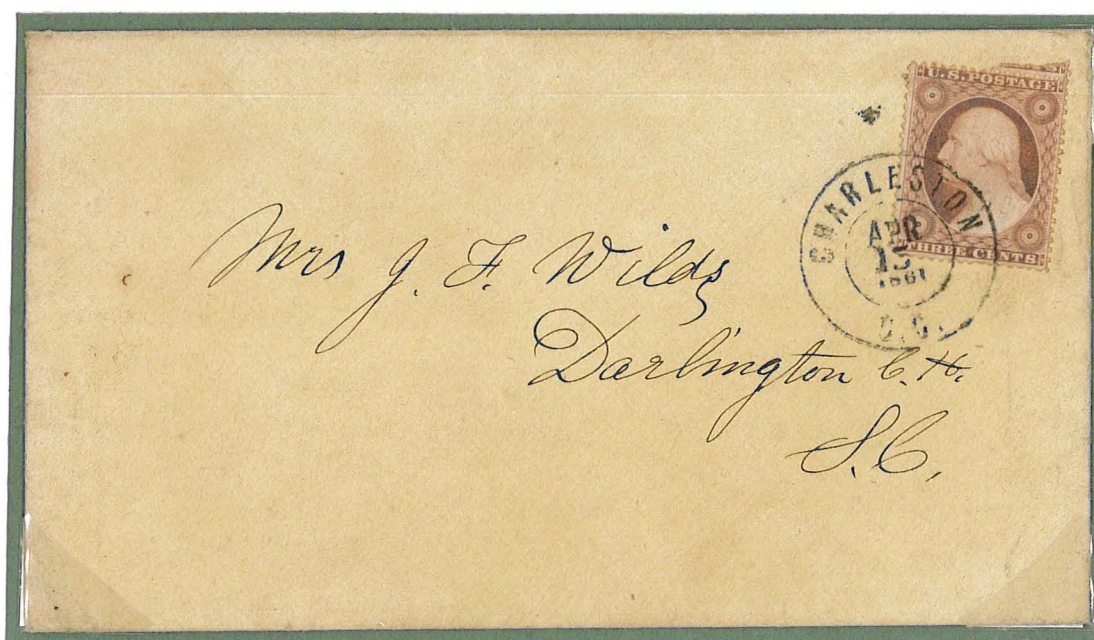 U.S. POSTAGE
THREE CENTS
CHARLESTON
APR
1861
Mrs J. F. Wilds
Darlington C. H.
S. C.